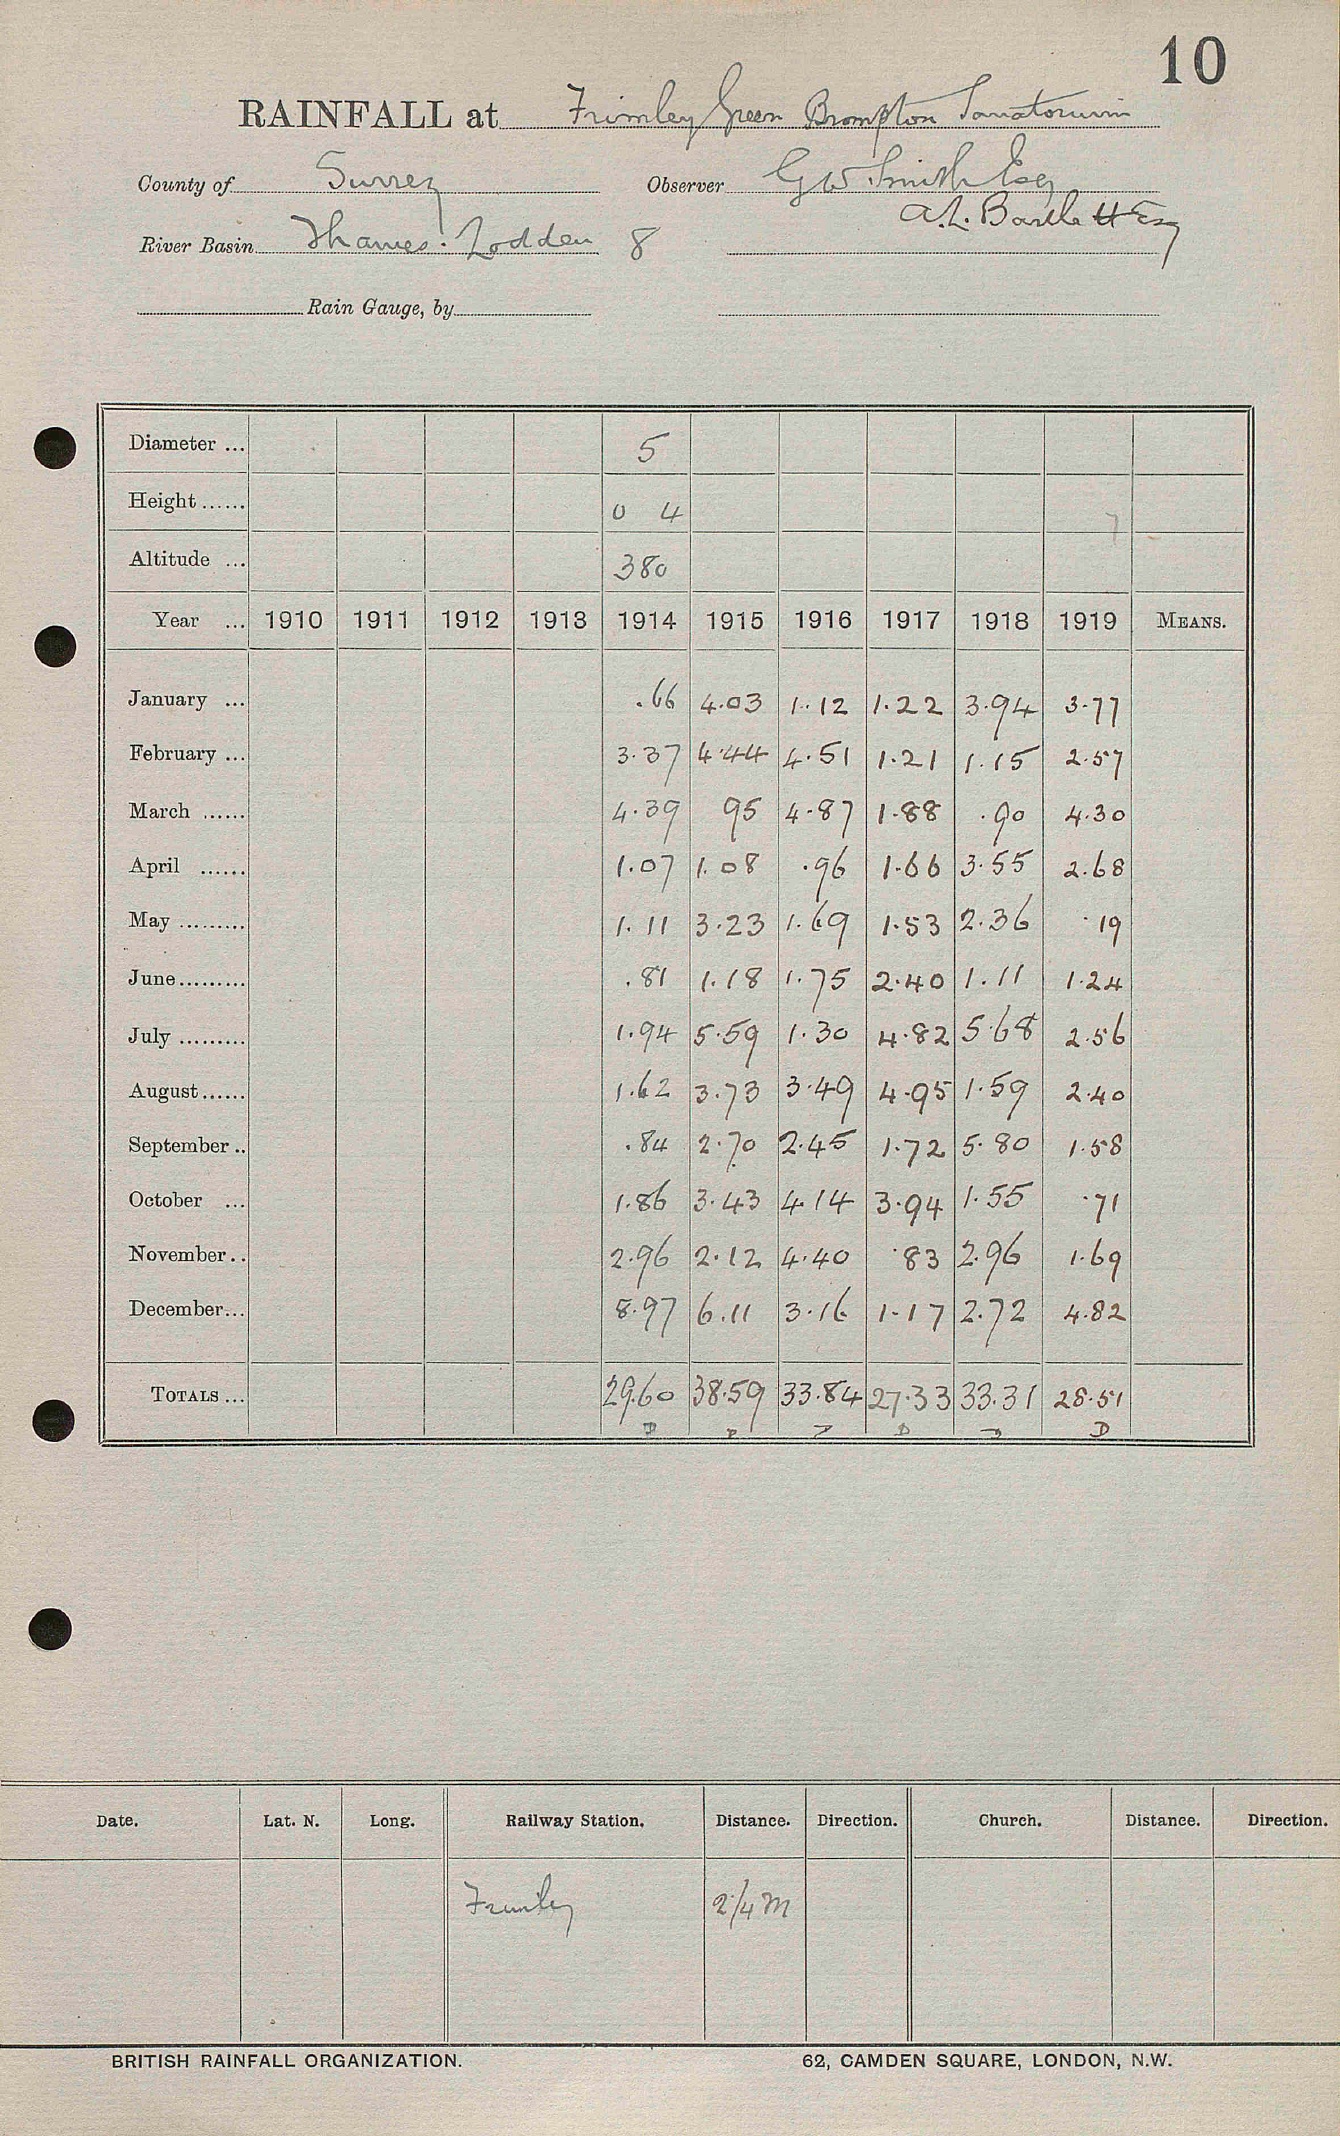 10
RAINFALL at Frimley Green Brompton Sanatorium
County of Surrey Observer G W Smith Esq
A.L. Bartlett Esq
River Basin Thames. Lodden 8
Rain Gauge, by
Diameter ... 5
Height ...... 0 4 7
Altitude ... 380
Year ... 1910 1911 1912 1913 1914 1915 1916 1917 1918 1919 MEANS.
January ... .66 4.03 1.12 1.22 3.94 3.77
February ... 3.37 4.44 4.51 1.21 1.15 2.57
March ...... 4.39 95 4.87 1.88 .90 4.30
April ...... 1.07 1.08 .96 1.66 3.55 2.68
May ......... 1.11 3.23 1.69 1.53 2.36 .19
June ......... .81 1.18 1.75 2.40 1.11 1.24
July ......... 1.94 5.59 1.30 4.82 5.68 2.56
August ...... 1.62 3.73 3.49 4.95 1.59 2.40
September .. .84 2.70 2.45 1.72 5.80 1.58
October ... 1.86 3.43 4.14 3.94 1.55 .71
November .. 2.96 2.12 4.40 .83 2.96 1.69
December ... 8.97 6.11 3.16 1.17 2.72 4.82
TOTALS ... 29.60 38.59 33.84 27.33 33.31 28.51
D D D D
Date. Lat. N. Long. Railway Station. Distance. Direction. Church. Distance. Direction.
Frimley 2 1/4 m
BRITISH RAINFALL ORGANIZATION. 62, CAMDEN SQUARE, LONDON, N.W.